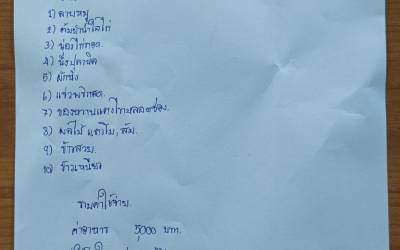 1) ลาบหมู
2) ต้มยำน้ำใสไก่
3) น่องไก่ทอด
4) นึ่งปลานิล
5) ผักนึ่ง
6) แจ่วพริกสด
7) ของหวาน
8) ผลไม้ แตงโม, ส้ม.
9) ข้าวสวย.
10) ข้าวเหนียว
รวมค่าใช้จ่าย.
ค่าอาหาร 5,000 บาท.